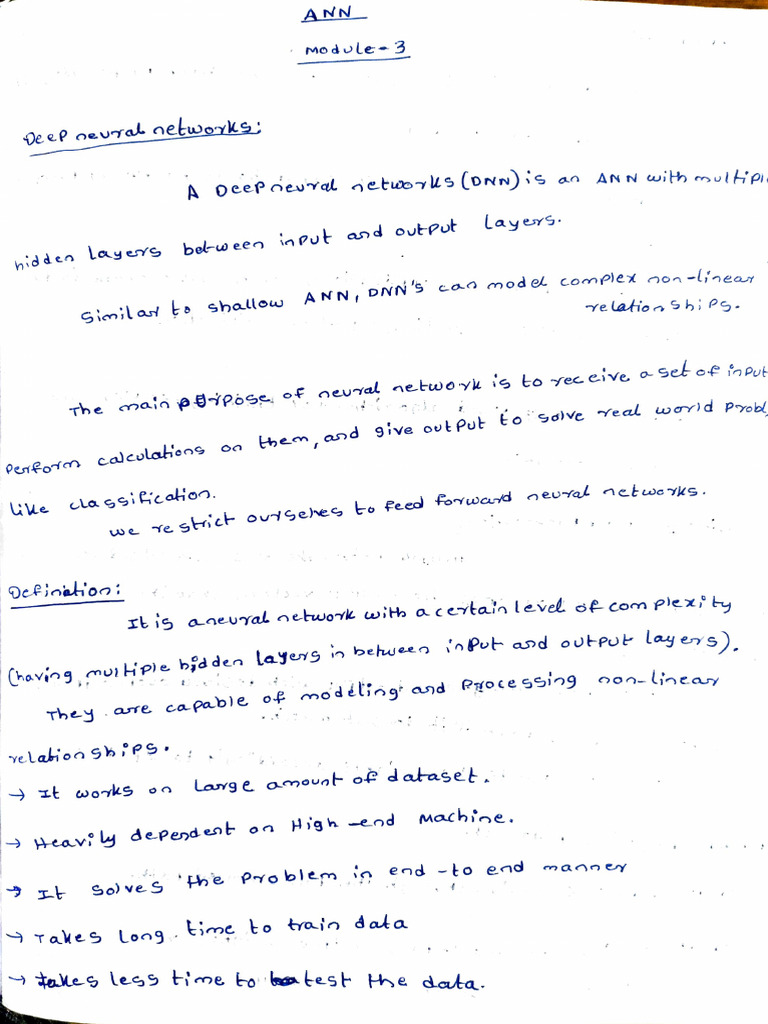 ANN
Module - 3
Deep neural networks:
A Deep neural networks (DNN) is an ANN with multiple
hidden layers between input and output layers.
Similar to shallow ANN, DNN's can model complex non-linear
relationships.
The main purpose of neural network is to receive a set of input
perform calculations on them, and give output to solve real world probl
like classification.
we restrict ourselves to feed forward neural networks.
Definition:
It is a neural network with a certain level of complexity
(having multiple hidden layers in between input and output layers).
They are capable of modeling and processing non-linear
relationships.
→ It works on large amount of dataset.
→ Heavily dependent on High-end Machine.
→ It solves the problem in end-to end manner
→ Takes long time to train data
→ takes less time to test the data.